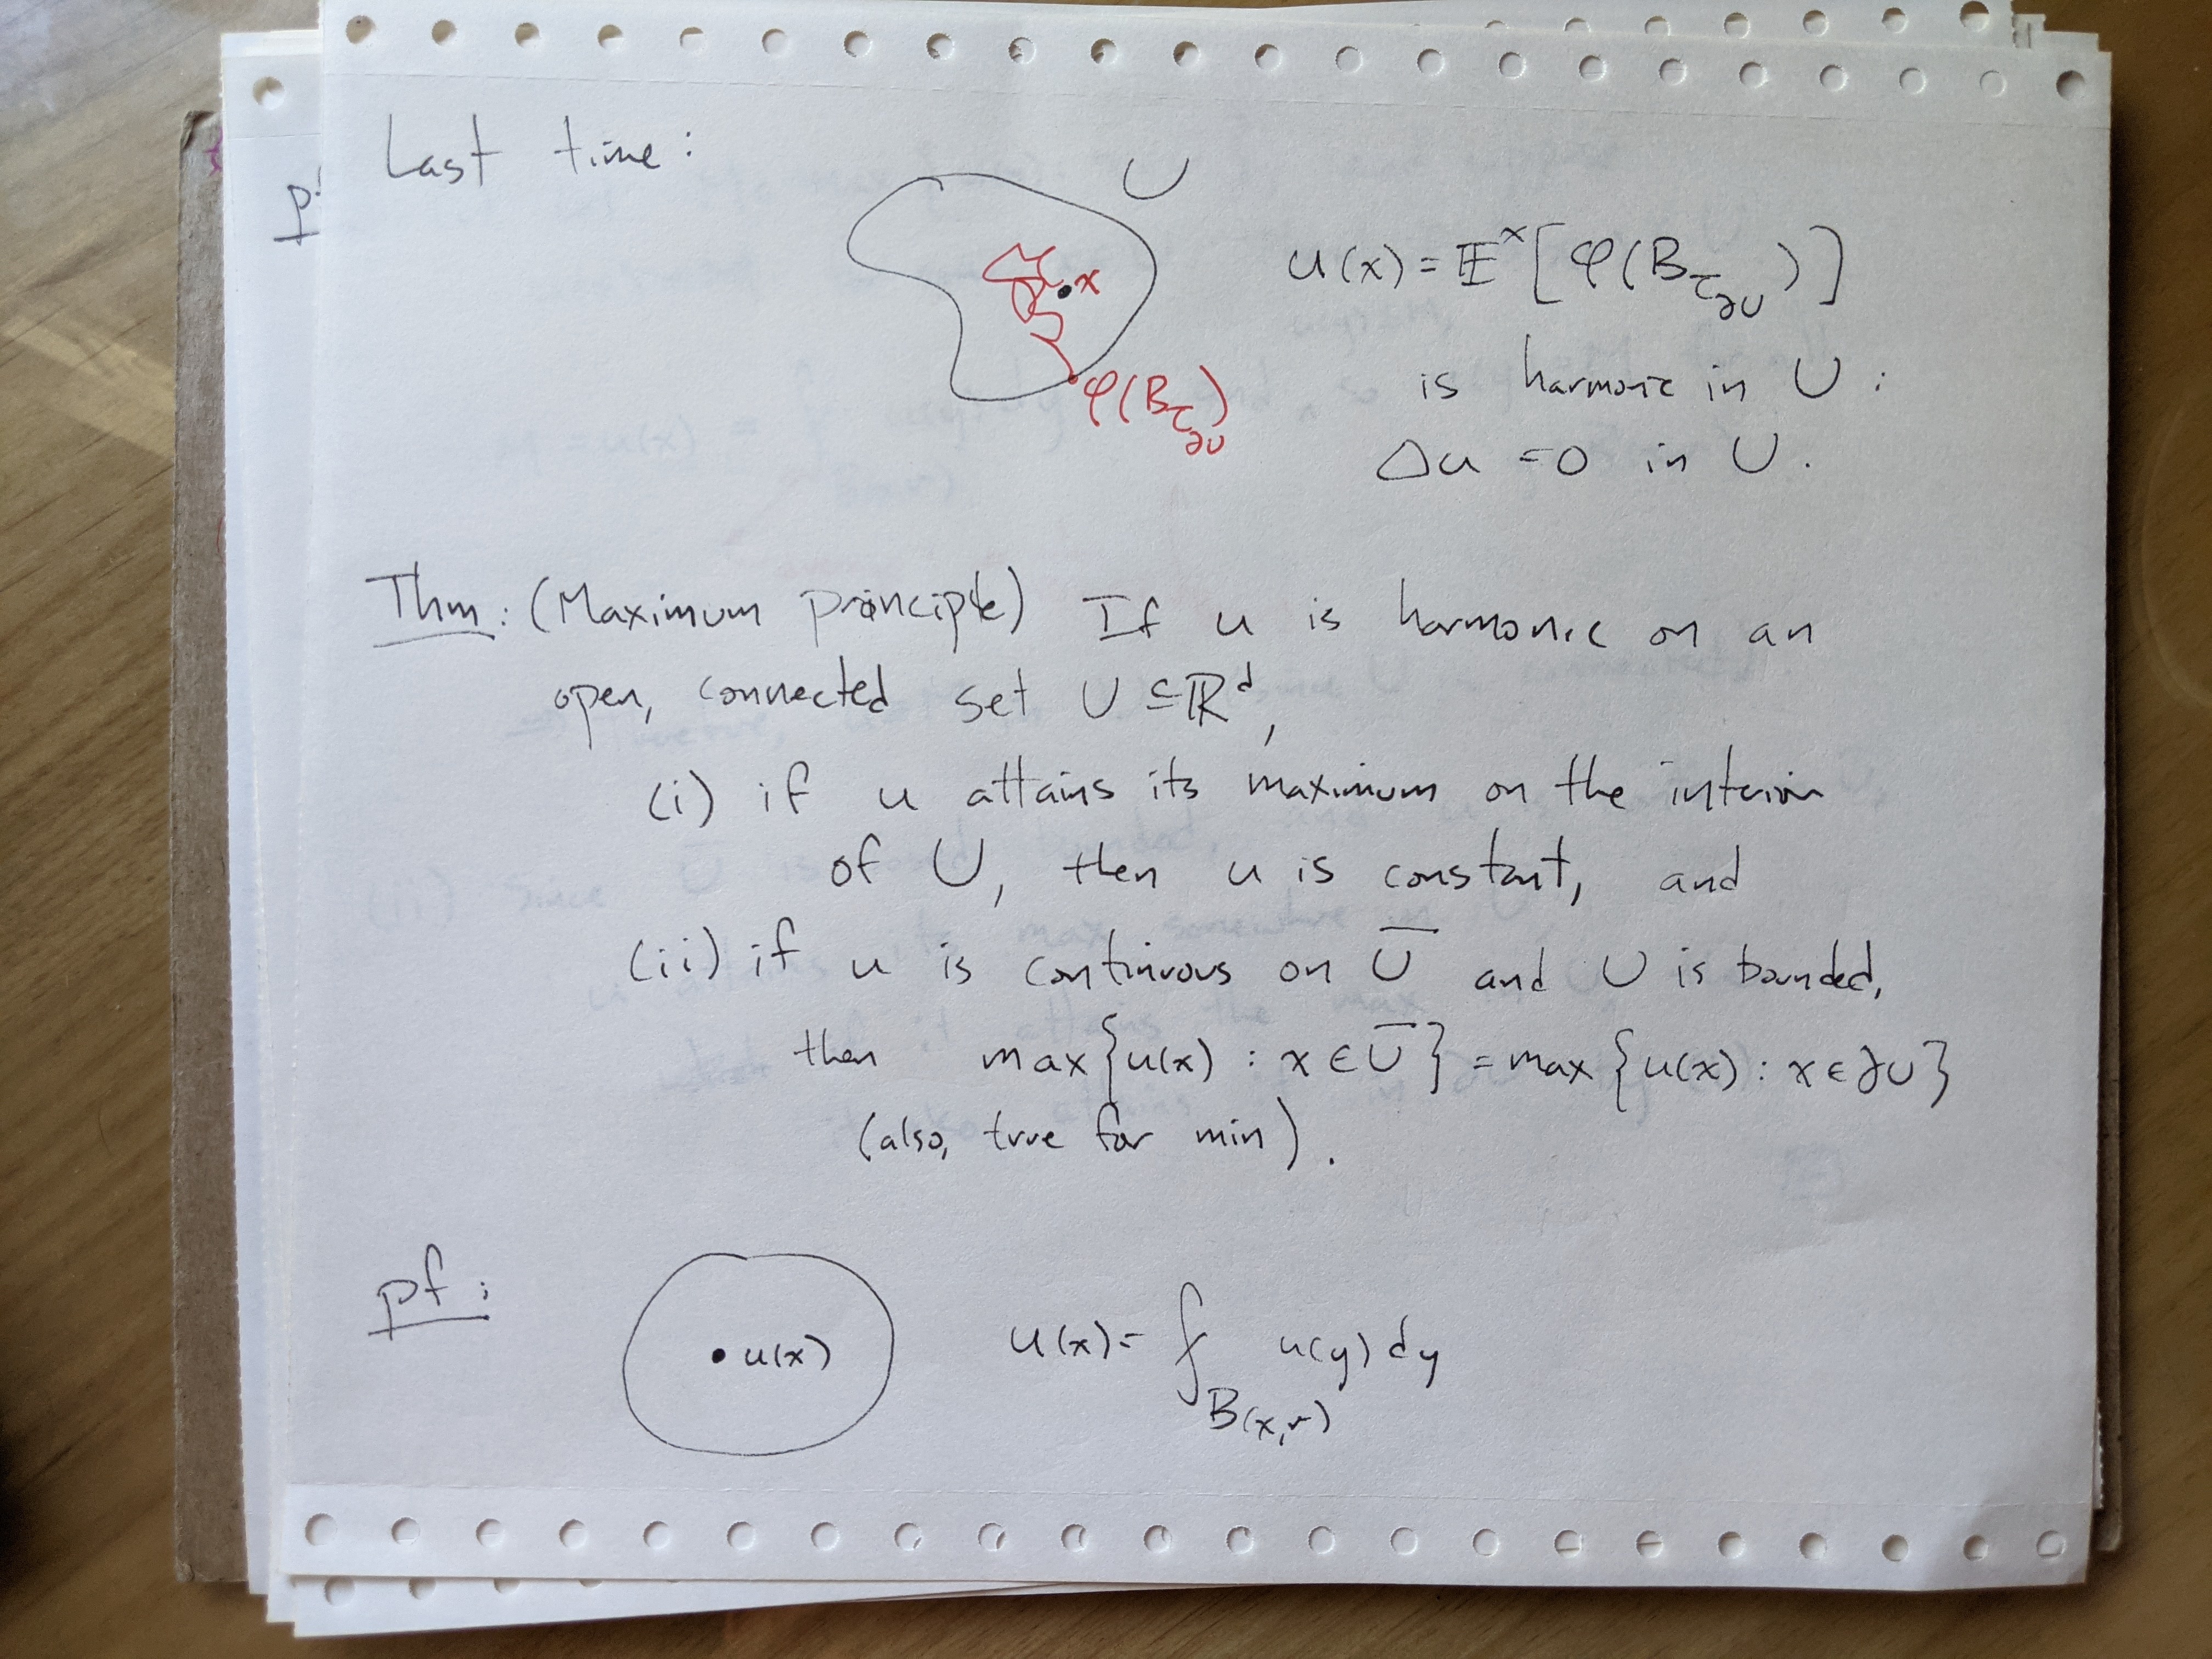 Last time:
U
x
φ(B_{τ_{∂U}})
u(x) = 𝔼^x[φ(B_{τ_{∂U}})]
is harmonic in U:
Δu = 0 in U.
Thm: (Maximum principle) If u is harmonic on an
open, connected set U ⊆ ℝ^d,
(i) if u attains its maximum on the interior
of U, then u is constant, and
(ii) if u is continuous on U̅ and U is bounded,
then max{u(x) : x ∈ U̅} = max{u(x) : x ∈ ∂U}
(also, true for min).
pf:
u(x)
u(x) = ⨍_{B(x,r)} u(y) dy